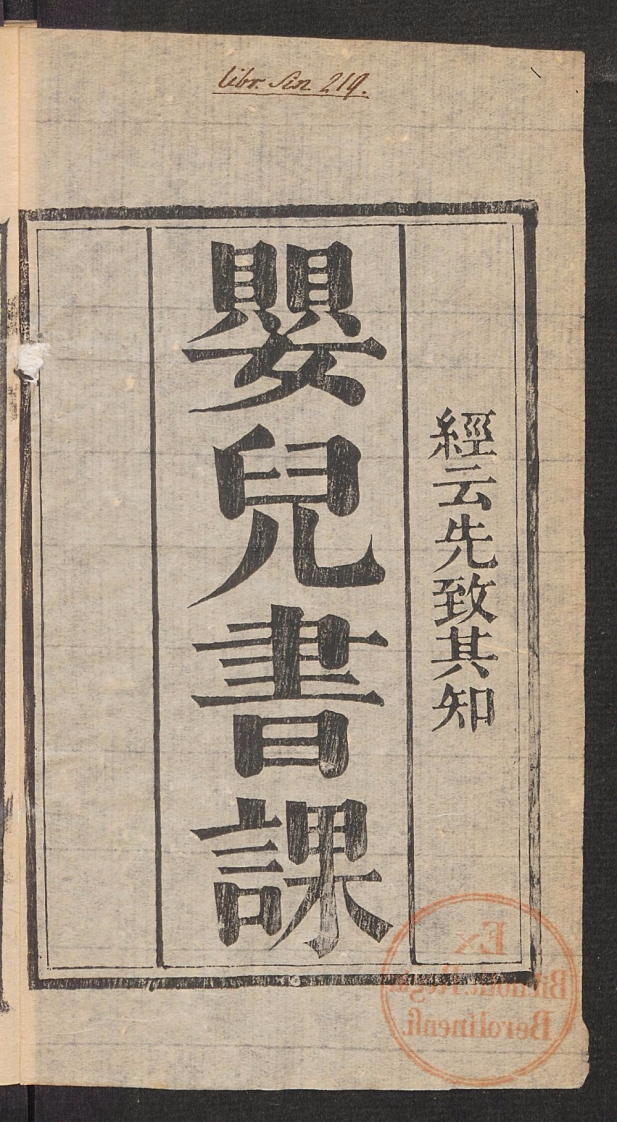 libr. sin. 219.
經云先致其知
嬰兒書課
Ex
Biblioth. Regia
Berolinensi.